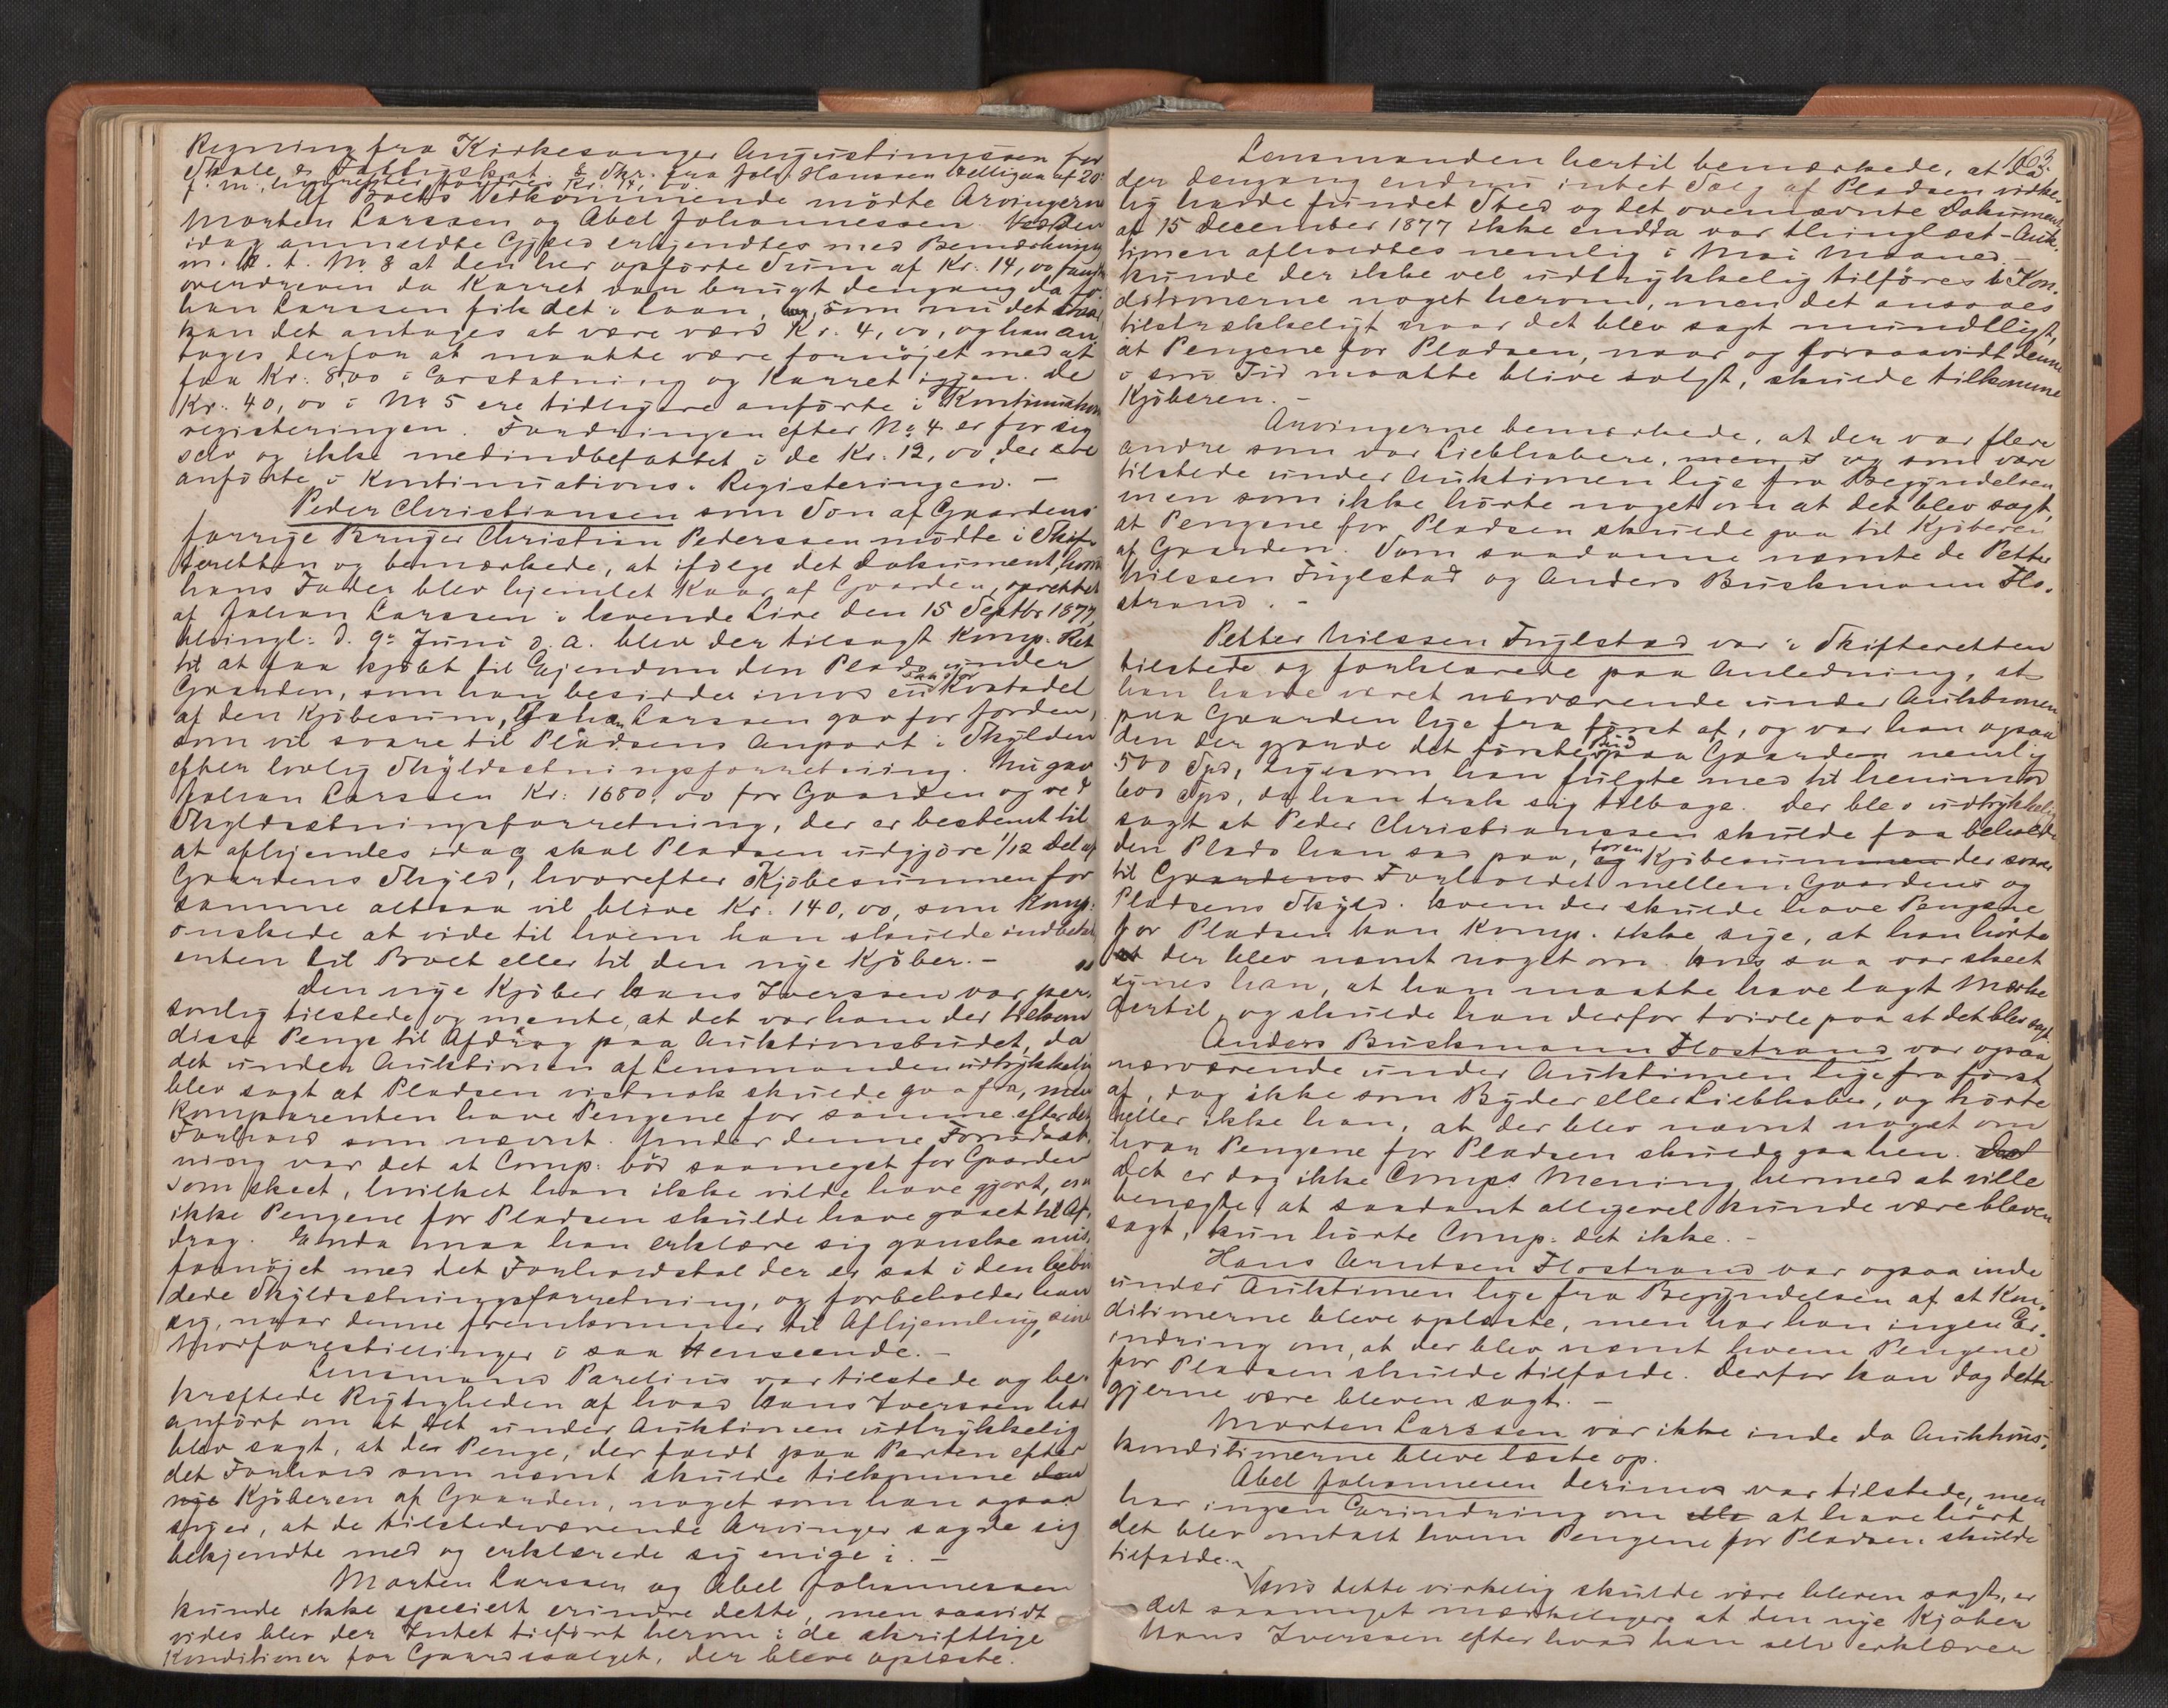 Regning fra Kirkesanger Augustinussen for
Skole & Fattigskat. & Skr. fra Joh. Hanssen Velligaa af 20
f. M., hvorefter fordres Kr. 14,00.
Af Boets Vedkommende mödte Arvingerne
Morten Larssen og Abel Johannessen. Ved den
idag anmeldte Gjæld erkjendtes med Bemærkning
m. H. t. No 8 at den her opförte Sum af Kr. 14,00 fandtes
overdreven da Karret var brugt dengang da Jo-
han Larssen fik det i Laan, som nu det staar
kan det antages at være værd Kr. 4,00, og han an-
tages derfor at maatte være fornöjet med at
faa Kr. 8,00 i Erstatning og Karret igjen. De
Kr. 40,00 i No 5 ere tidligere anförte i Kontinuations
registeringen. Fordringen efter No 4 er for sig
selv og ikke medindbefattet i de Kr. 12,00 der ere
anförte i Kontinuations-Registeringen. –
Peder Christiansen som Sön af Gaardens
forrige Bruger Christian Pederssen mödte i Skif-
teretten og bemærkede, at ifölge det Dokument, hvori
hans Fader blev hjemlet Kaar af Gaarden, oprettet
af Johan Larssen i levende Live den 15 Septbr 1877,
thingl: d. 9de Juni d. A. blev der tilsagt Komp. Ret
til at faa kjöbt til Ejendom den Plads under
Gaarden, som han besidder imod saastor en Kvotadel
af den Kjöbesum, Johan Larssen gav for Jorden,
som vil svare til Pladsens Anpart i Skylden
efter lovlig Skyldsætningsforretning. Nu gav
Johan Larssen Kr: 1680,00 for Gaarden og ved
Skyldsætningsforretning, der er bestemt til
at afhjemles idag skal Pladsen udgjöre 1/12 Del af
Gaardens Skyld, hvorefter Kjöbesummen for
samme altsaa vil blive Kr: 140,00, som Komp.
önskede at vide til hvem han skulde indbetale
enten til Boet eller til den nye Kjöber. –
Den nye Kjöber Hans Iverssen var per-
sonlig tilstede og mente, at det var ham der tilkom
disse Penge til Afdrag paa Auktionsbudet, da
det under Auktionen af Lensmanden udtrykkelig
blev sagt at Pladsen vistnok skulde gaa fra, men
Komparenten have Pengene for samme efter det
Forhold som nævnt. Under denne Forudsæt-
ning var det at Comp: böd saameget for Gaarden
som skeet, hvilket han ikke vilde have gjort, om
ikke Pengene for Pladsen skulde have gaaet til Af-
drag. Endda maa han erklære sig ganske mis-
fornöjet med det Forholdstal der er sat i den
Skyldsætningsforretning, og forbeholder han
sig, naar denne fremkommer til Afhjemling, sine
Modforestillinger i saa Henseende. –
Lensmand Parelius var tilstede og be-
kræftede Rigtigheden af hvad Hans Iverssen har
anfört om at det under Auktionen udtrykkelig
blev sagt, at de Penge, der faldt paa Parten efter
det Forhold som nævnt skulde tilkomme den
nye Kjöberen af Gaarden, noget som han ogsaa
siger, at de tilstedeværende Arvinger sagde sig
bekjendte med og erklærede sig enige i. –
Morten Larssen og Abel Johannessen
kunde ikke specielt erindre dette, men saavidt
vides blev der Intet tilfört herom i de skriftlige
Konditioner for Gaardsalget, der bleve oplæste.
163.
Lensmanden hertil bemærkede, at da
der dengang endnu intet Salg af Pladsen virke-
lig havde fundet Sted og det ovennævnte Dokument
af 15 December 1877 ikke endda var thinglæst – Auk-
tionen afholdtes nemlig i Mai Maaned. –
kunde der ikke vel udtrykkelig tilföres Kon-
ditionerne noget herom, men det ansaaes
tilstrækkeligt naar det blev sagt mundtligt,
at Pengene for Pladsen, naar og forsaavidt denne
i sin Tid maatte blive solgt, skulde tilkomme
Kjöberen. –
Arvingerne bemærkede, at der var flere
andre som var Liebhabere, men i og som vare
tilstede under Auktionen lige fra Begyndelsen
men som ikke hörte noget om at det blev sagt,
at Pengene for Pladsen skulde gaa til Kjöberen
af Gaarden. Som saadanne nævnte de Petter
Nilssen Fuglstad og Anders Buskmann Flo-
strand. –
Petter Nilssen Fuglstad var i Skifteretten
tilstede og forklarede paa Anledning, at
han havde været nærværende under Auktionen
paa Gaarden lige fra först af, og var han ogsaa
den der gjorde det förste Bud paa Gaarden nemlig
500 Spd, ligesom han fulgte med til henimod
600 Spd, da han trak sig tilbage. Der blev udtrykkelig
sagt at Peder Christianssen skulde faa beholde
den Plads han sad paa, for en og Kjöbesummen der svarer
til Gaardens Forholdet mellem Gaardens og
Pladsens Skyld. Hvem der skulde have Pengene
for Pladsen kan Komp. ikke sige, at han hörte
at der blev nævnt noget om. Hvis saa var skeet
synes han, at han maatte have lagt Mærke
dertil, og skulde han derfor tvivle paa at det blev sagt.
Anders Buskmann Flostrand var ogsaa
nærværende under Auktionen lige fra först
af, dog ikke som Byder eller Liebhaber, og hörte
heller ikke han, at der blev nævnt noget om
hvor Pengene for Pladsen skulde gaa hen. Det
Det er dog ikke Comps Mening hermed at ville
benægte, at saadant alligevel kunde være bleven
sagt, kun hörte Comp: det ikke. –
Hans Arntsen Flostrand var ogsaa inde
under Auktionen lige fra Begyndelsen af at Kon-
ditionerne bleve oplæste, men har han ingen Er-
indring om, at der blev nævnt hvem Pengene
for Pladsen skulde tilfalde. Derfor kan dog dette
gjerne være bleven sagt. –
Morten Larssen var ikke inde da Auktions-
konditionerne bleve læste op.
Abel Johannesen derimod var tilstede, men
har ingen Erindring om at have hört
det blev omtalt hvem Pengene for Pladsen skulde
tilfalde. –
Hvis dette virkelig skulde være bleven sagt, er
det saameget mærkeligere at den nye Kjöber
Hans Iverssen efter hvad han selv erklærer